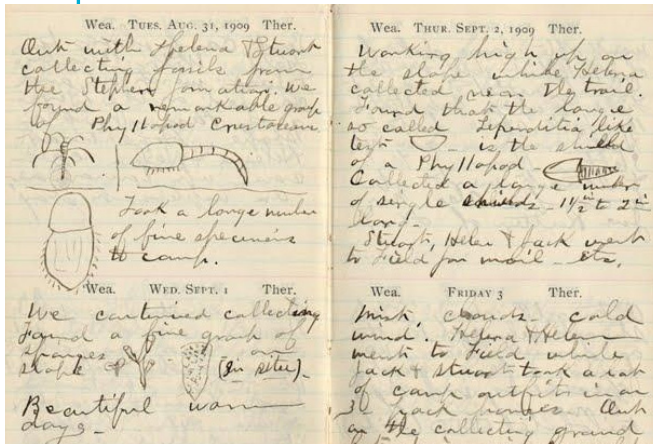 Wea. TUES. AUG. 31, 1909 Ther.
Out with Helena & Stuart
collecting fossils from
the Stephen formation. We
found a remarkable group
of Phyllopod Crustaceans
Took a large number
of fine specimens
to camp.
Wea. WED. SEPT. 1 Ther.
We continued collecting
Found a fine group of
sponges on
slope (in situ)
Beautiful warm
days
Wea. THUR. SEPT. 2, 1909 Ther.
Working high up on
the slope while Helena
collected near the trail.
Found that the large
so called Leperditia like
test is the shield
of a Phyllopod
Collected a large number
of single 1½ in to 2 in
long.
Stuart, Helen & Jack went
to Field for mail etc.
Wea. FRIDAY 3 Ther.
Mist, clouds, cold
wind. Helena & Helen
went to Field while
Jack & Stuart took a lot
of camp outfit in on
3 pack horses Out
on the collecting ground